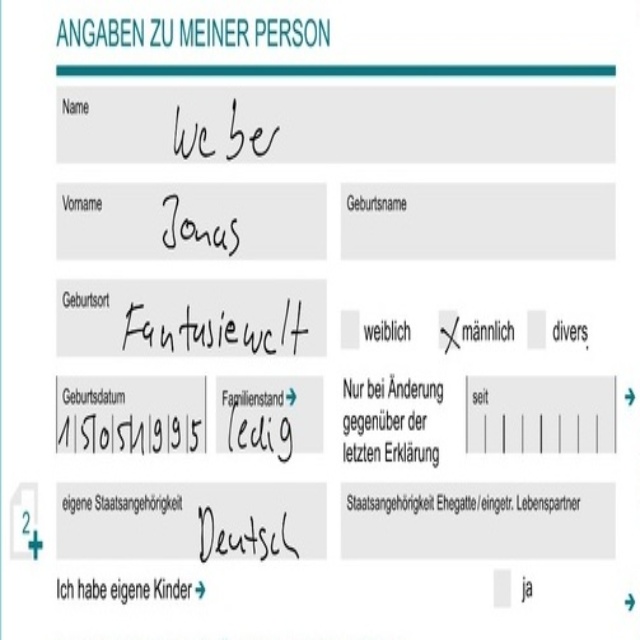 ANGABEN ZU MEINER PERSON
Name
Weber
Vorname
Jonas
Geburtsname
Geburtsort
Fantasiewelt
weiblich
männlich
divers
Geburtsdatum
15051995
Familienstand
ledig
Nur bei Änderung
gegenüber der
letzten Erklärung
seit
2
eigene Staatsangehörigkeit
Deutsch
Staatsangehörigkeit Ehegatte/eingetr. Lebenspartner
Ich habe eigene Kinder
ja